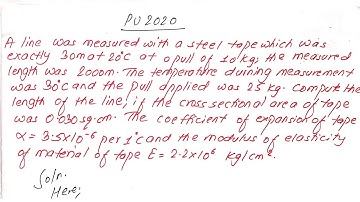 PU 2020
A line was measured with a steel tape which was
exactly 30m at 20°c at a pull of 10 kg, the measured
length was 2000m. The temperature during measurement
was 30°c and the pull applied was 25 kg. compute the
length of the line, if the cross sectional area of tape
was 0.030 sq.cm. The coefficient of expansion of tape
α = 3.5x10⁻⁶ per 1°c and the modulus of elasticity
of material of tape E = 2.2x10⁶ kg/cm².
Soln.
Here;